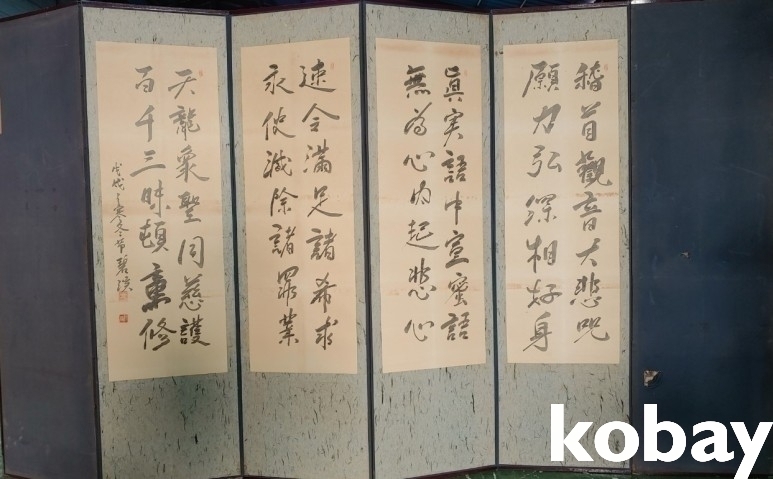 稽首觀音大悲呪
願力弘深相好身
眞実語中宣蜜語
無為心內起悲心
速令滿足諸希求
永使滅除諸罪業
天龍衆聖同慈護
百千三昧頓熏修
kobay